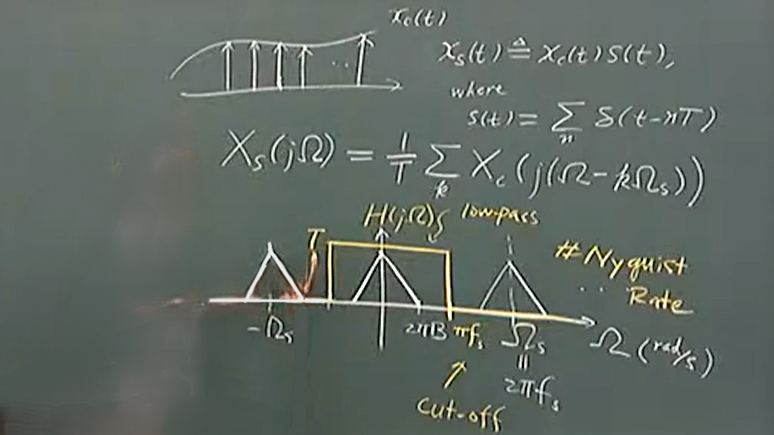 x_c(t)
x_s(t) ≜ x_c(t) s(t),
where
s(t) = ∑_n δ(t-nT)
X_s(jΩ) = 1/T ∑_k X_c(j(Ω-kΩ_s))
H(jΩ) low-pass
T
# Nyquist
.. Rate
-Ω_s
2πB
πf_s
Ω_s
Ω (rad/s)
=
2πf_s
cut-off